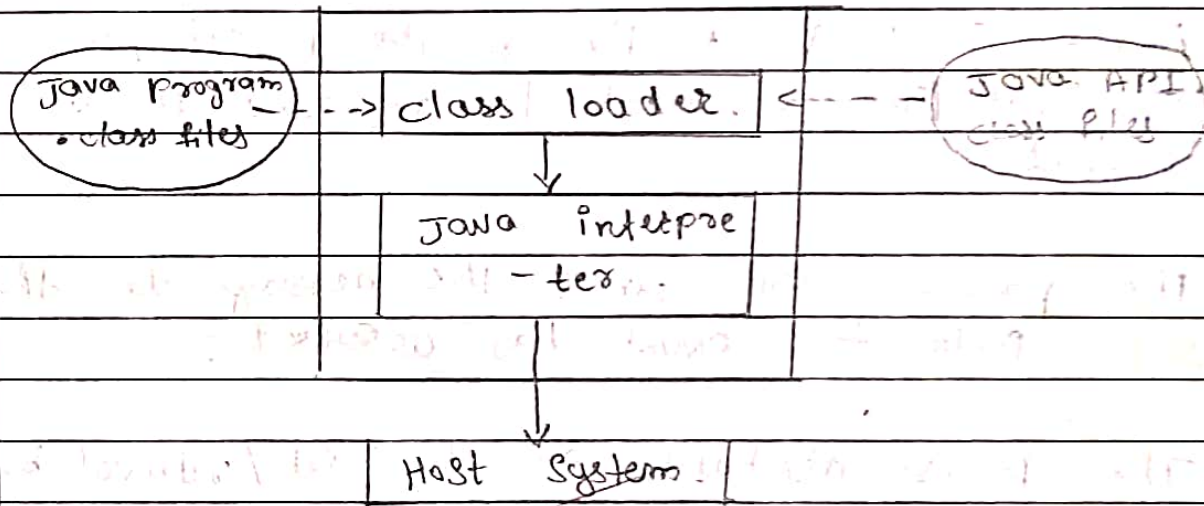 Java program
.class files
class loader.
Java API
class files
Java interpre
-ter.
Host System.